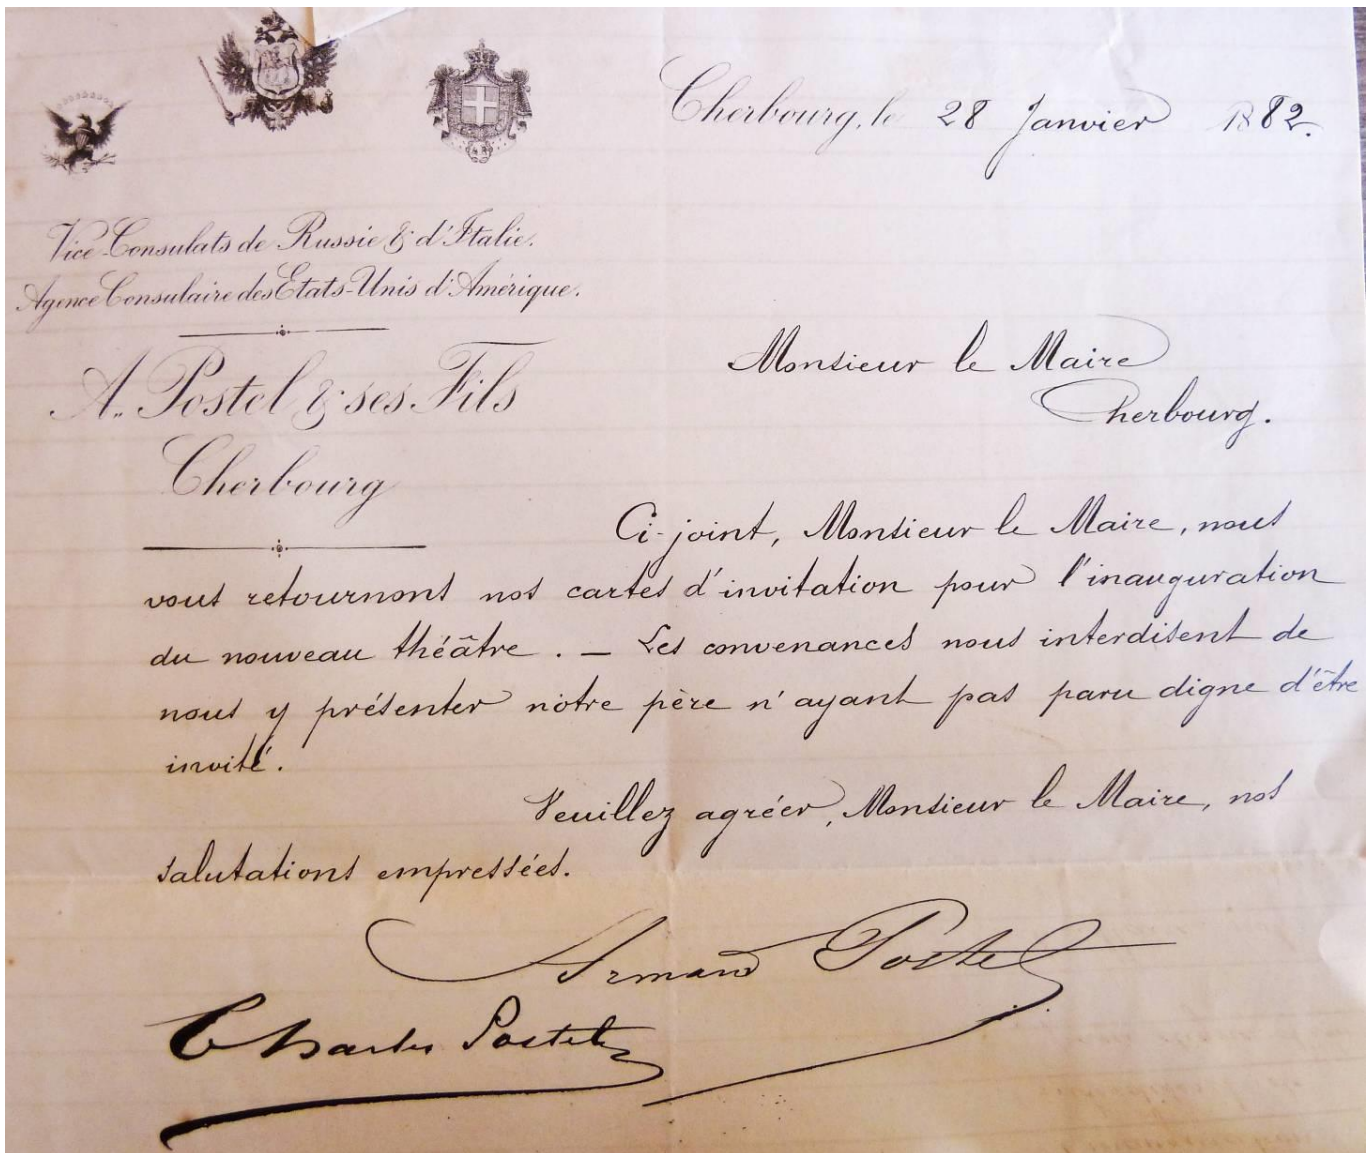 Cherbourg, le 28 Janvier 1882.
Vice-Consulats de Russie & d'Italie.
Agence Consulaire des Etats-Unis d'Amérique.
A. Postel & ses Fils
Cherbourg
Monsieur le Maire
Cherbourg.
Ci-joint, Monsieur le Maire, nous
vous retournons nos cartes d'invitation pour l'inauguration
du nouveau théâtre. — Les convenances nous interdisent de
nous y présenter notre père n'ayant pas paru digne d'être
invité.
Veuillez agréer, Monsieur le Maire, nos
salutations empressées.
Armand Postel
Charles Postel